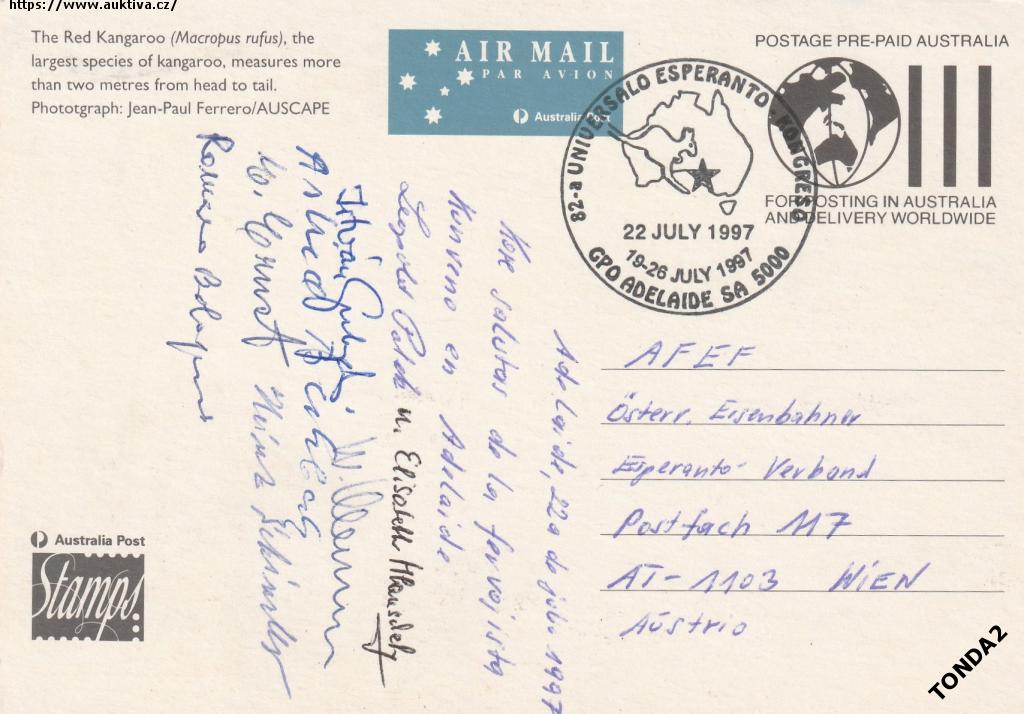 https://www.auktiva.cz/
The Red Kangaroo (Macropus rufus), the
largest species of kangaroo, measures more
than two metres from head to tail.
Photograph: Jean-Paul Ferrero/AUSCAPE
AIR MAIL
PAR AVION
Australia Post
POSTAGE PRE-PAID AUSTRALIA
FOR POSTING IN AUSTRALIA
AND DELIVERY WORLDWIDE
82-a UNIVERSALO ESPERANTO-KONGRESO
22 JULY 1997
19-26 JULY 1997
GPO ADELAIDE SA 5000
Adelaide, 22a de julio 1997
Kore salutas de la fervojista
kunveno en Adelaide
Leopold Patek u. Elisabeth
István
Heinz
AFEF
Österr. Eisenbahner
Esperanto-Verband
Postfach 117
AT-1103 WIEN
Aŭstrio
Australia Post
Stamps
TONDA2